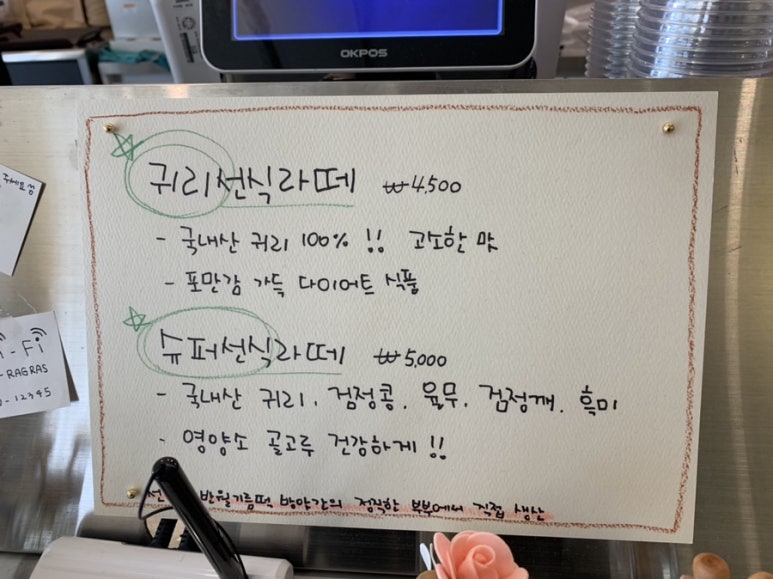 OKPOS
귀리선식라떼 ₩4,500
- 국내산 귀리 100% !! 고소한 맛
- 포만감 가득 다이어트 식품
슈퍼선식라떼 ₩5,000
- 국내산 귀리, 검정콩, 율무, 검정깨, 흑미
- 영양소 골고루 건강하게 !!
반월기름떡 방앗간의 정직한 부부에서 직접 생산
주세요
- Fi
-RAGRAS
-12345